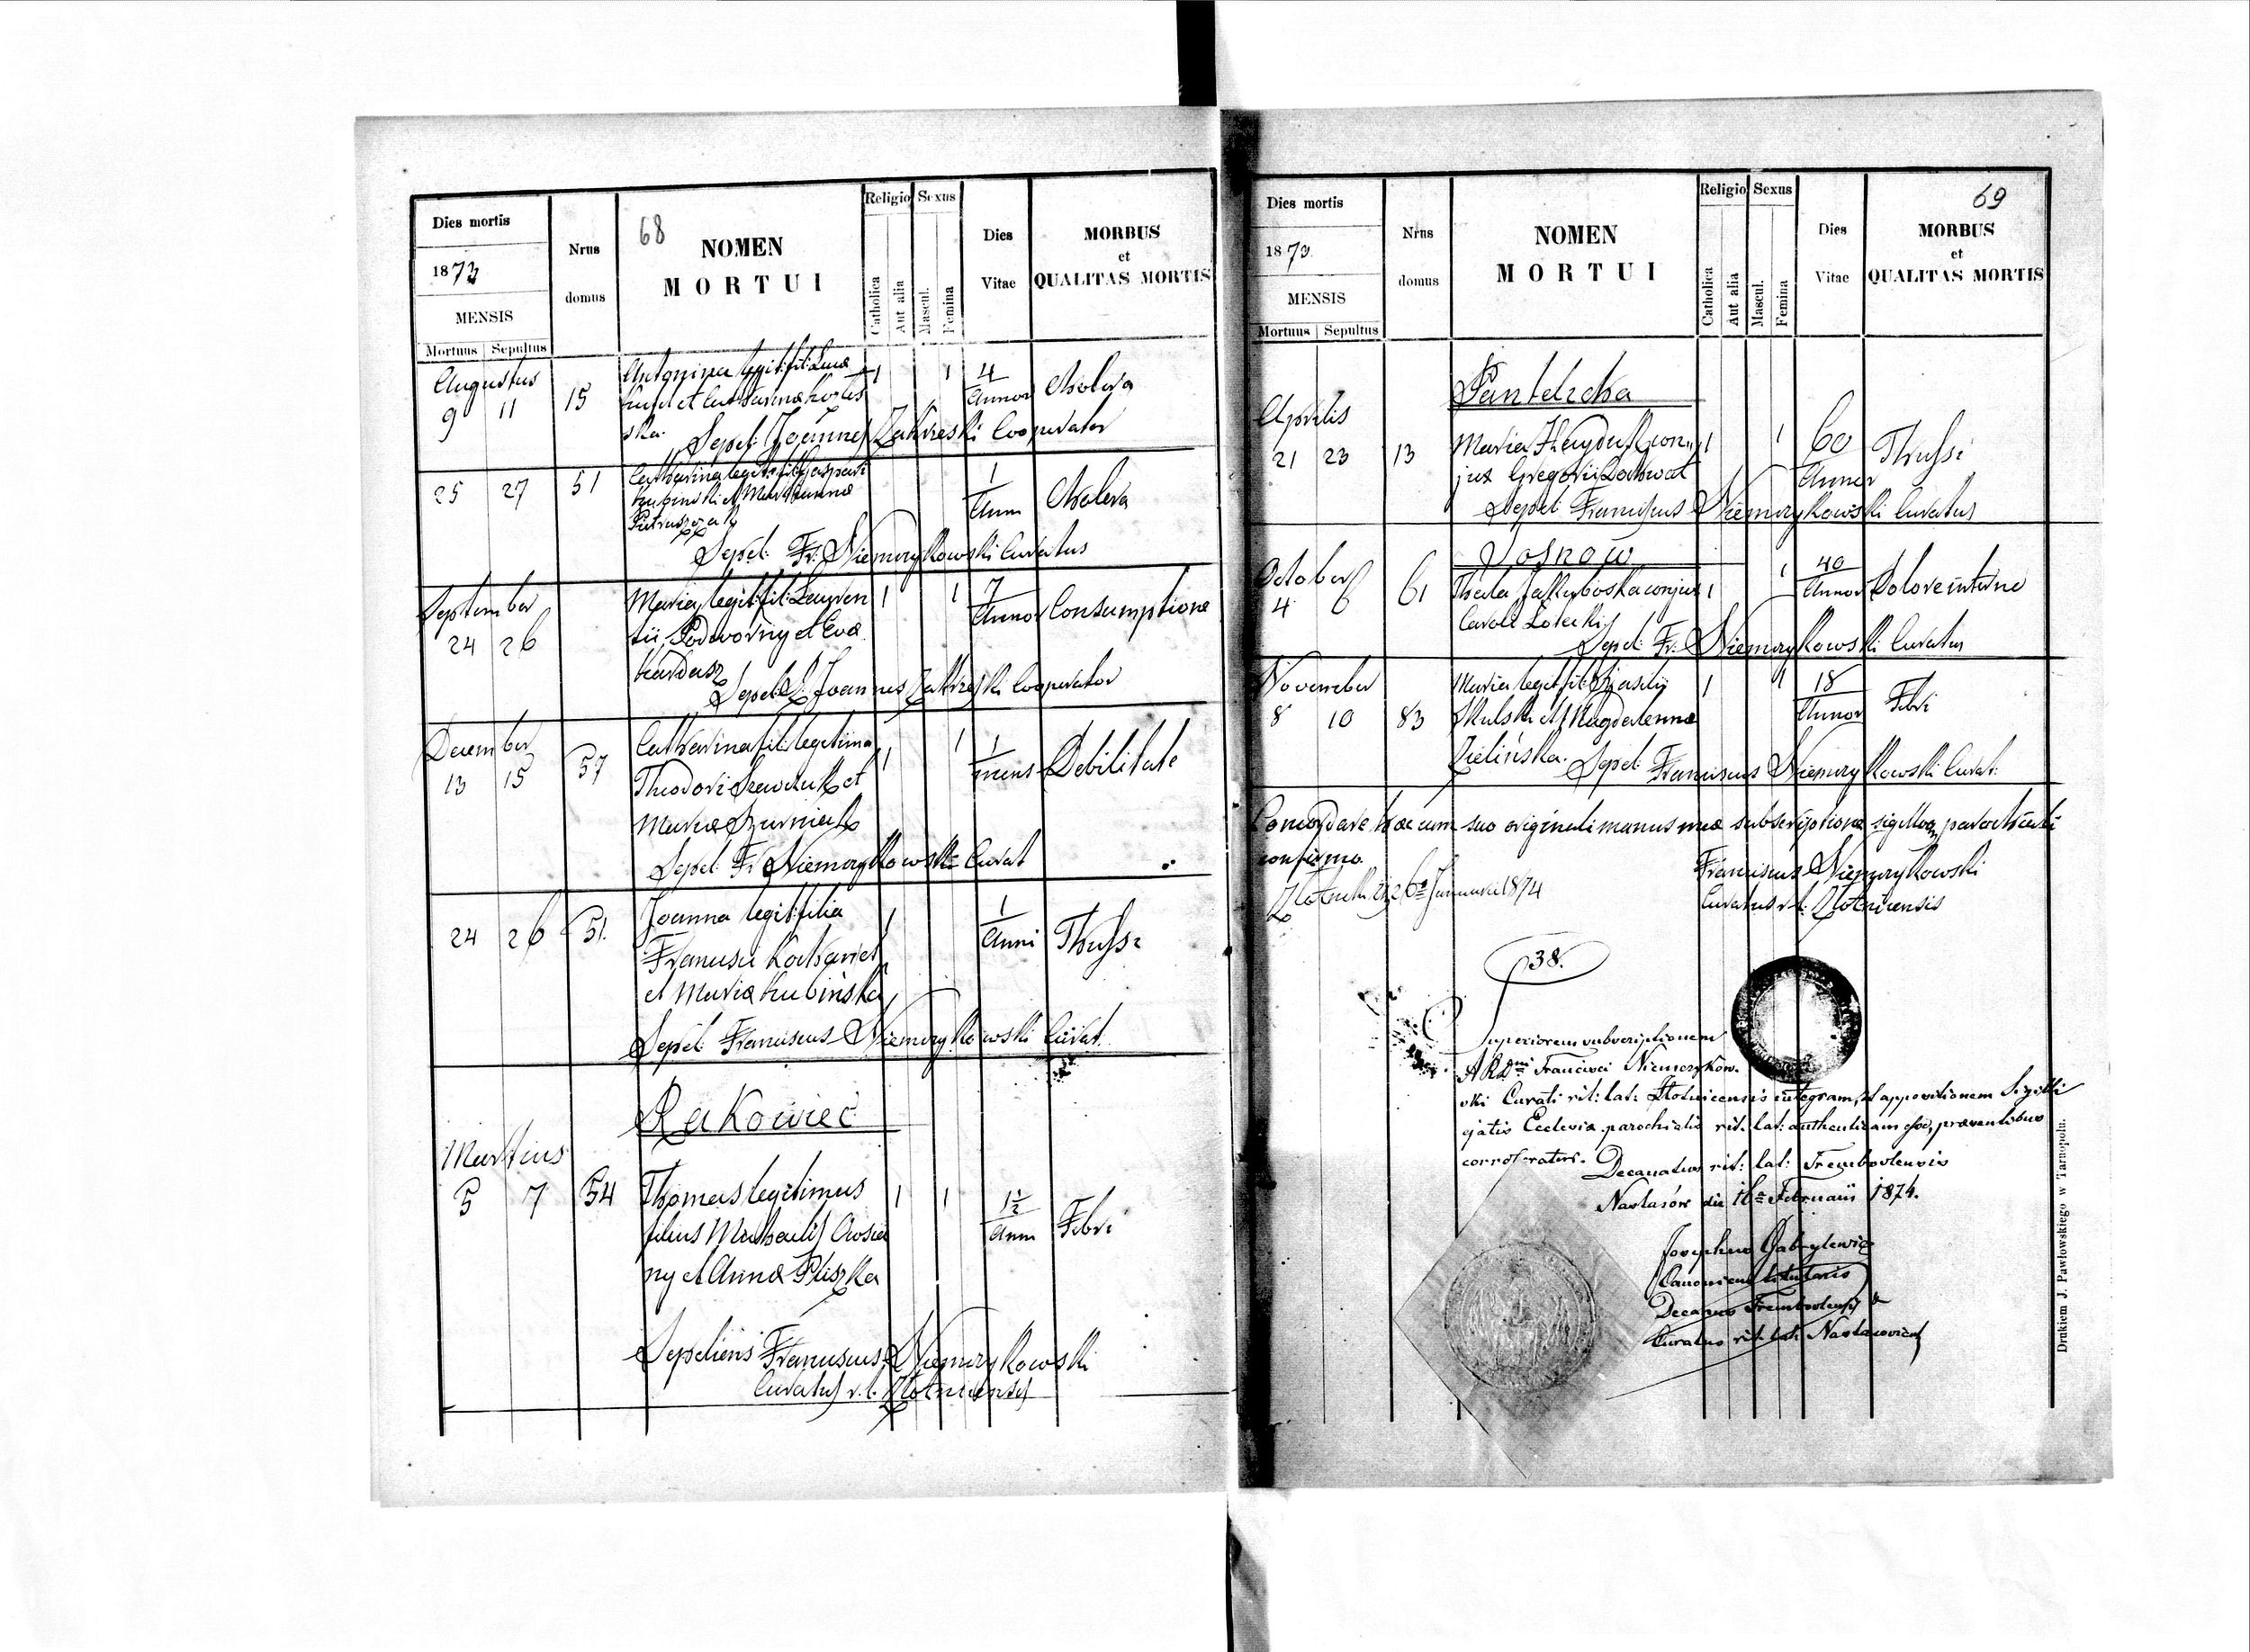 Dies mortis
1873
MENSIS
Mortuus Sepultus
Nrus
domus
68
NOMEN
MORTUI
Religio Sexus
Catholica
Aut alia
Mascul.
Femina
Dies
Vitae
MORBUS
et
QUALITAS MORTIS
Augustus
9 11 15 legit: fil: Lucæ 1 1 4 Annor Cholera
et Catharinæ
ska.
Sepel: Joannes Zakrzeski Cooperator
25 27 51 Catharina legit: fil: Gaspari 1 Anni Cholera
Kubinski et Mariannæ
Sepel: Fr: Niemczykowski Curatus
September
24 26 Maria legit: fil: Lauren 1 1 7 Annor Consumptione
tii Podworny et Evæ
Kardasz
Sepel: Joannes Zakrzeski Cooperator
December
13 15 57 Catharina fil: legitima 1 1 1 mens Debilitate
Theodori Szewczuk et
Mariæ
Sepel: Fr: Niemczykowski Curat
24 26 51. Joanna legit: filia 1 1 Anni Thussi
Francisci et
et Mariæ Kubińska
Sepel: Franciscus Niemczykowski Curat.
Rakowiec
Martius
5 7 54 Thomas legitimus 1 1 1½ Anni Febri
filius Michaelis
ny et Annæ Pliszka
Sepeliens Franciscus Niemczykowski
Curatus r. l. Zlotnicensis
Dies mortis
1873.
MENSIS
Mortuus Sepultus
Nrus
domus
NOMEN
MORTUI
Religio Sexus
Catholica
Aut alia
Mascul.
Femina
Dies
Vitae
69
MORBUS
et
QUALITAS MORTIS
Pantelicha
Aprilis
21 23 13 Maria Hayduk con„ 1 1 60 Annor Thussi
jux Gregorii
Sepel: Franciscus Niemczykowski Curatus
Sosnow
October
4 6 61 Thecla conjux 1 1 40 Annor Dolore interno
Caroli
Sepel: Fr: Niemczykowski Curatus
November
8 10 83 Maria legit: fil: Basilij 1 1 18 Annor Febri
Skulski et Magdalennæ
Zielińska. Sepel: Franciscus Niemczykowski Curat:
Concordare hæc cum suo originali manus meæ subscriptione sigilloq parochiali
confirmo.
Januarii 1874
Franciscus Niemczykowski
Curatus r. l: Zlotnicensis
38.
Superiorem subscriptionem
A R Dni Francisci Niemczykow-
ski Curati rit: lat: Zlotnicensis integram, et appositionem Sigilli
ejatis Ecclesiæ parochialis rit: lat: authenticam esse, præsentibus
corroboratur. Decanatus rit: lat: Trembovlensis
Nastasów die 16a Februarii 1874.
Josephus Gabrylewicz
Canonicus titularis
Decanus Trembovlensis &
Curatus rit. lat: Nastasoviensis
Drukiem J. Pawłowskiego w Tarnopolu.